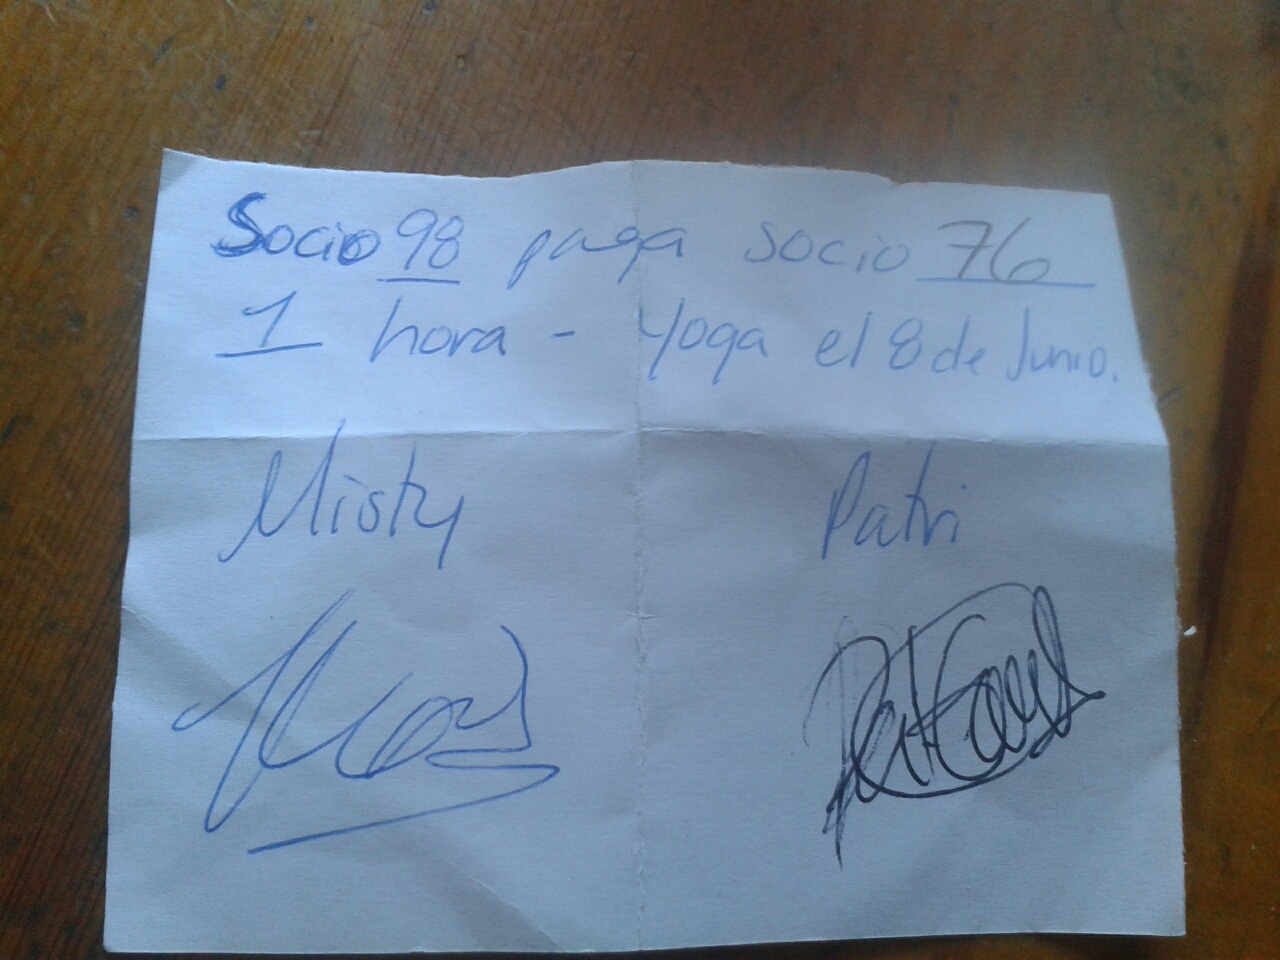 Socio 98 paga socio 76
1 hora - Yoga el 8 de Junio.
Misty Patri